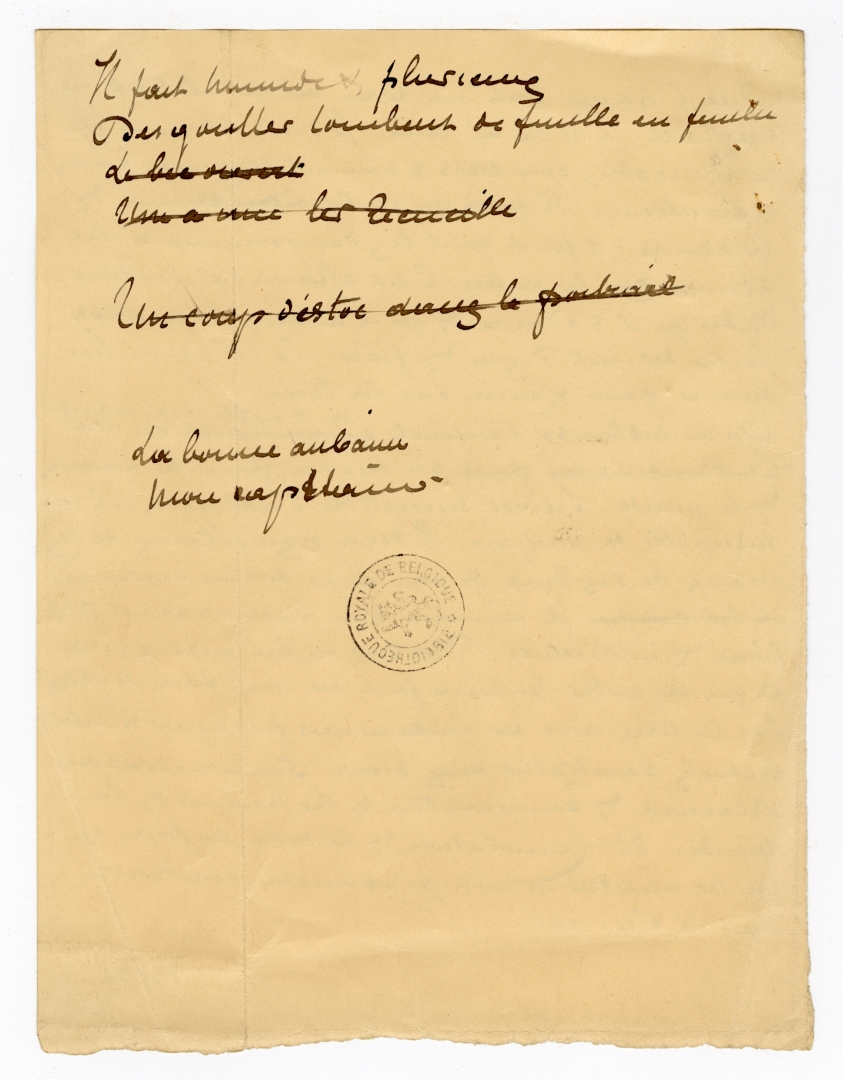 Il fait humide & pluvieux
Des gouttes tombent de feuille en feuille
Le bec ouvert
Un les recueille
Un coup d'estoc dans le poitrail
La bonne aubaine
Mon capitaine
BIBLIOTHÈQUE ROYALE DE BELGIQUE